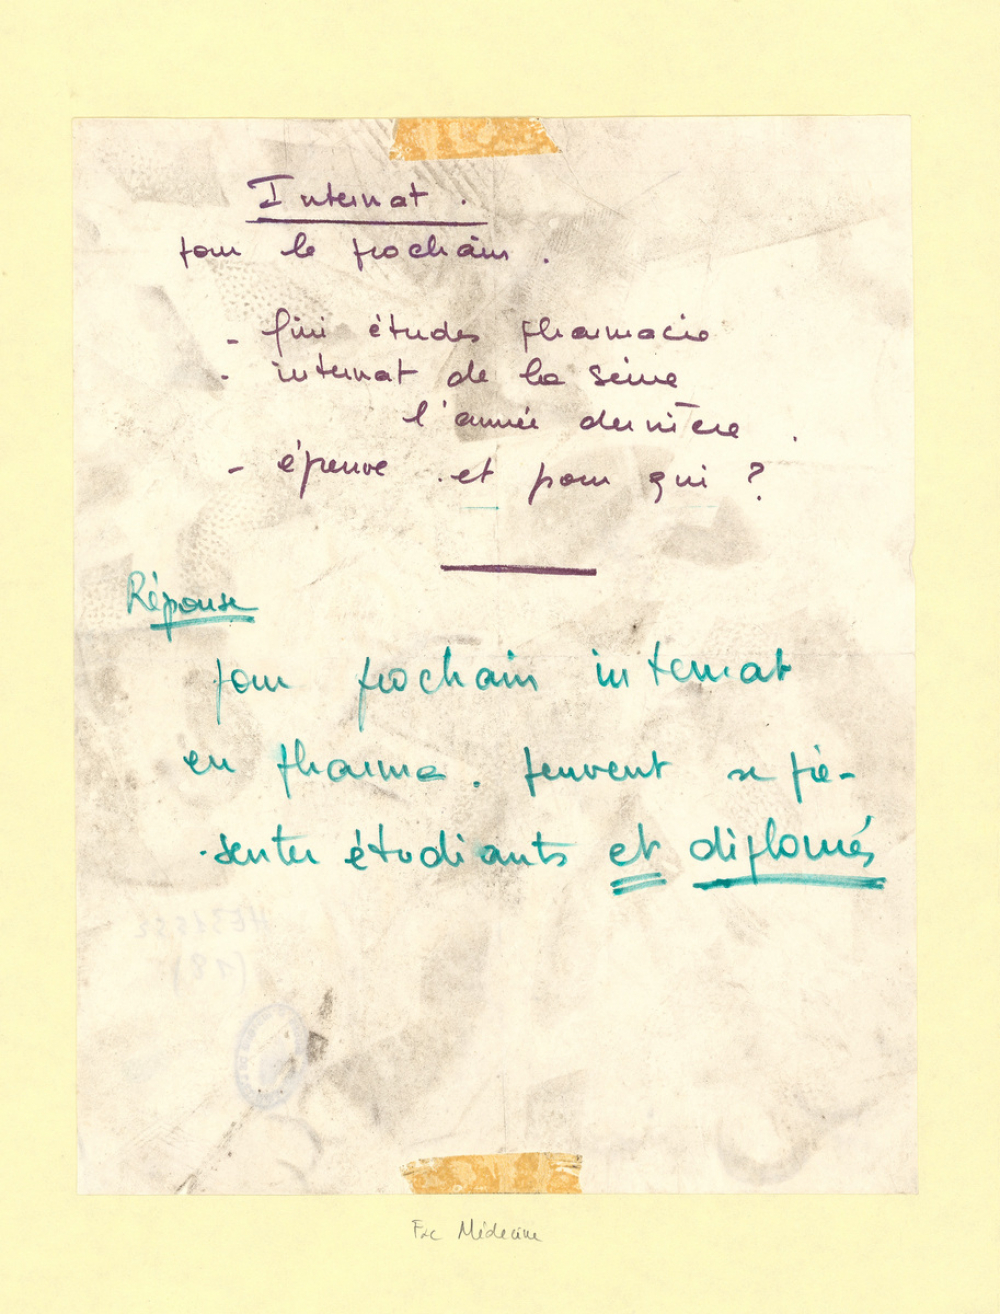 Internat.
pour le prochain.
- fini études pharmacie
- internat de la Seine
l'année dernière.
- épreuve et pour qui ?
Réponse
pour prochain internat
en pharma. peuvent se pré-
senter étudiants et diplomés
Fac Médecine